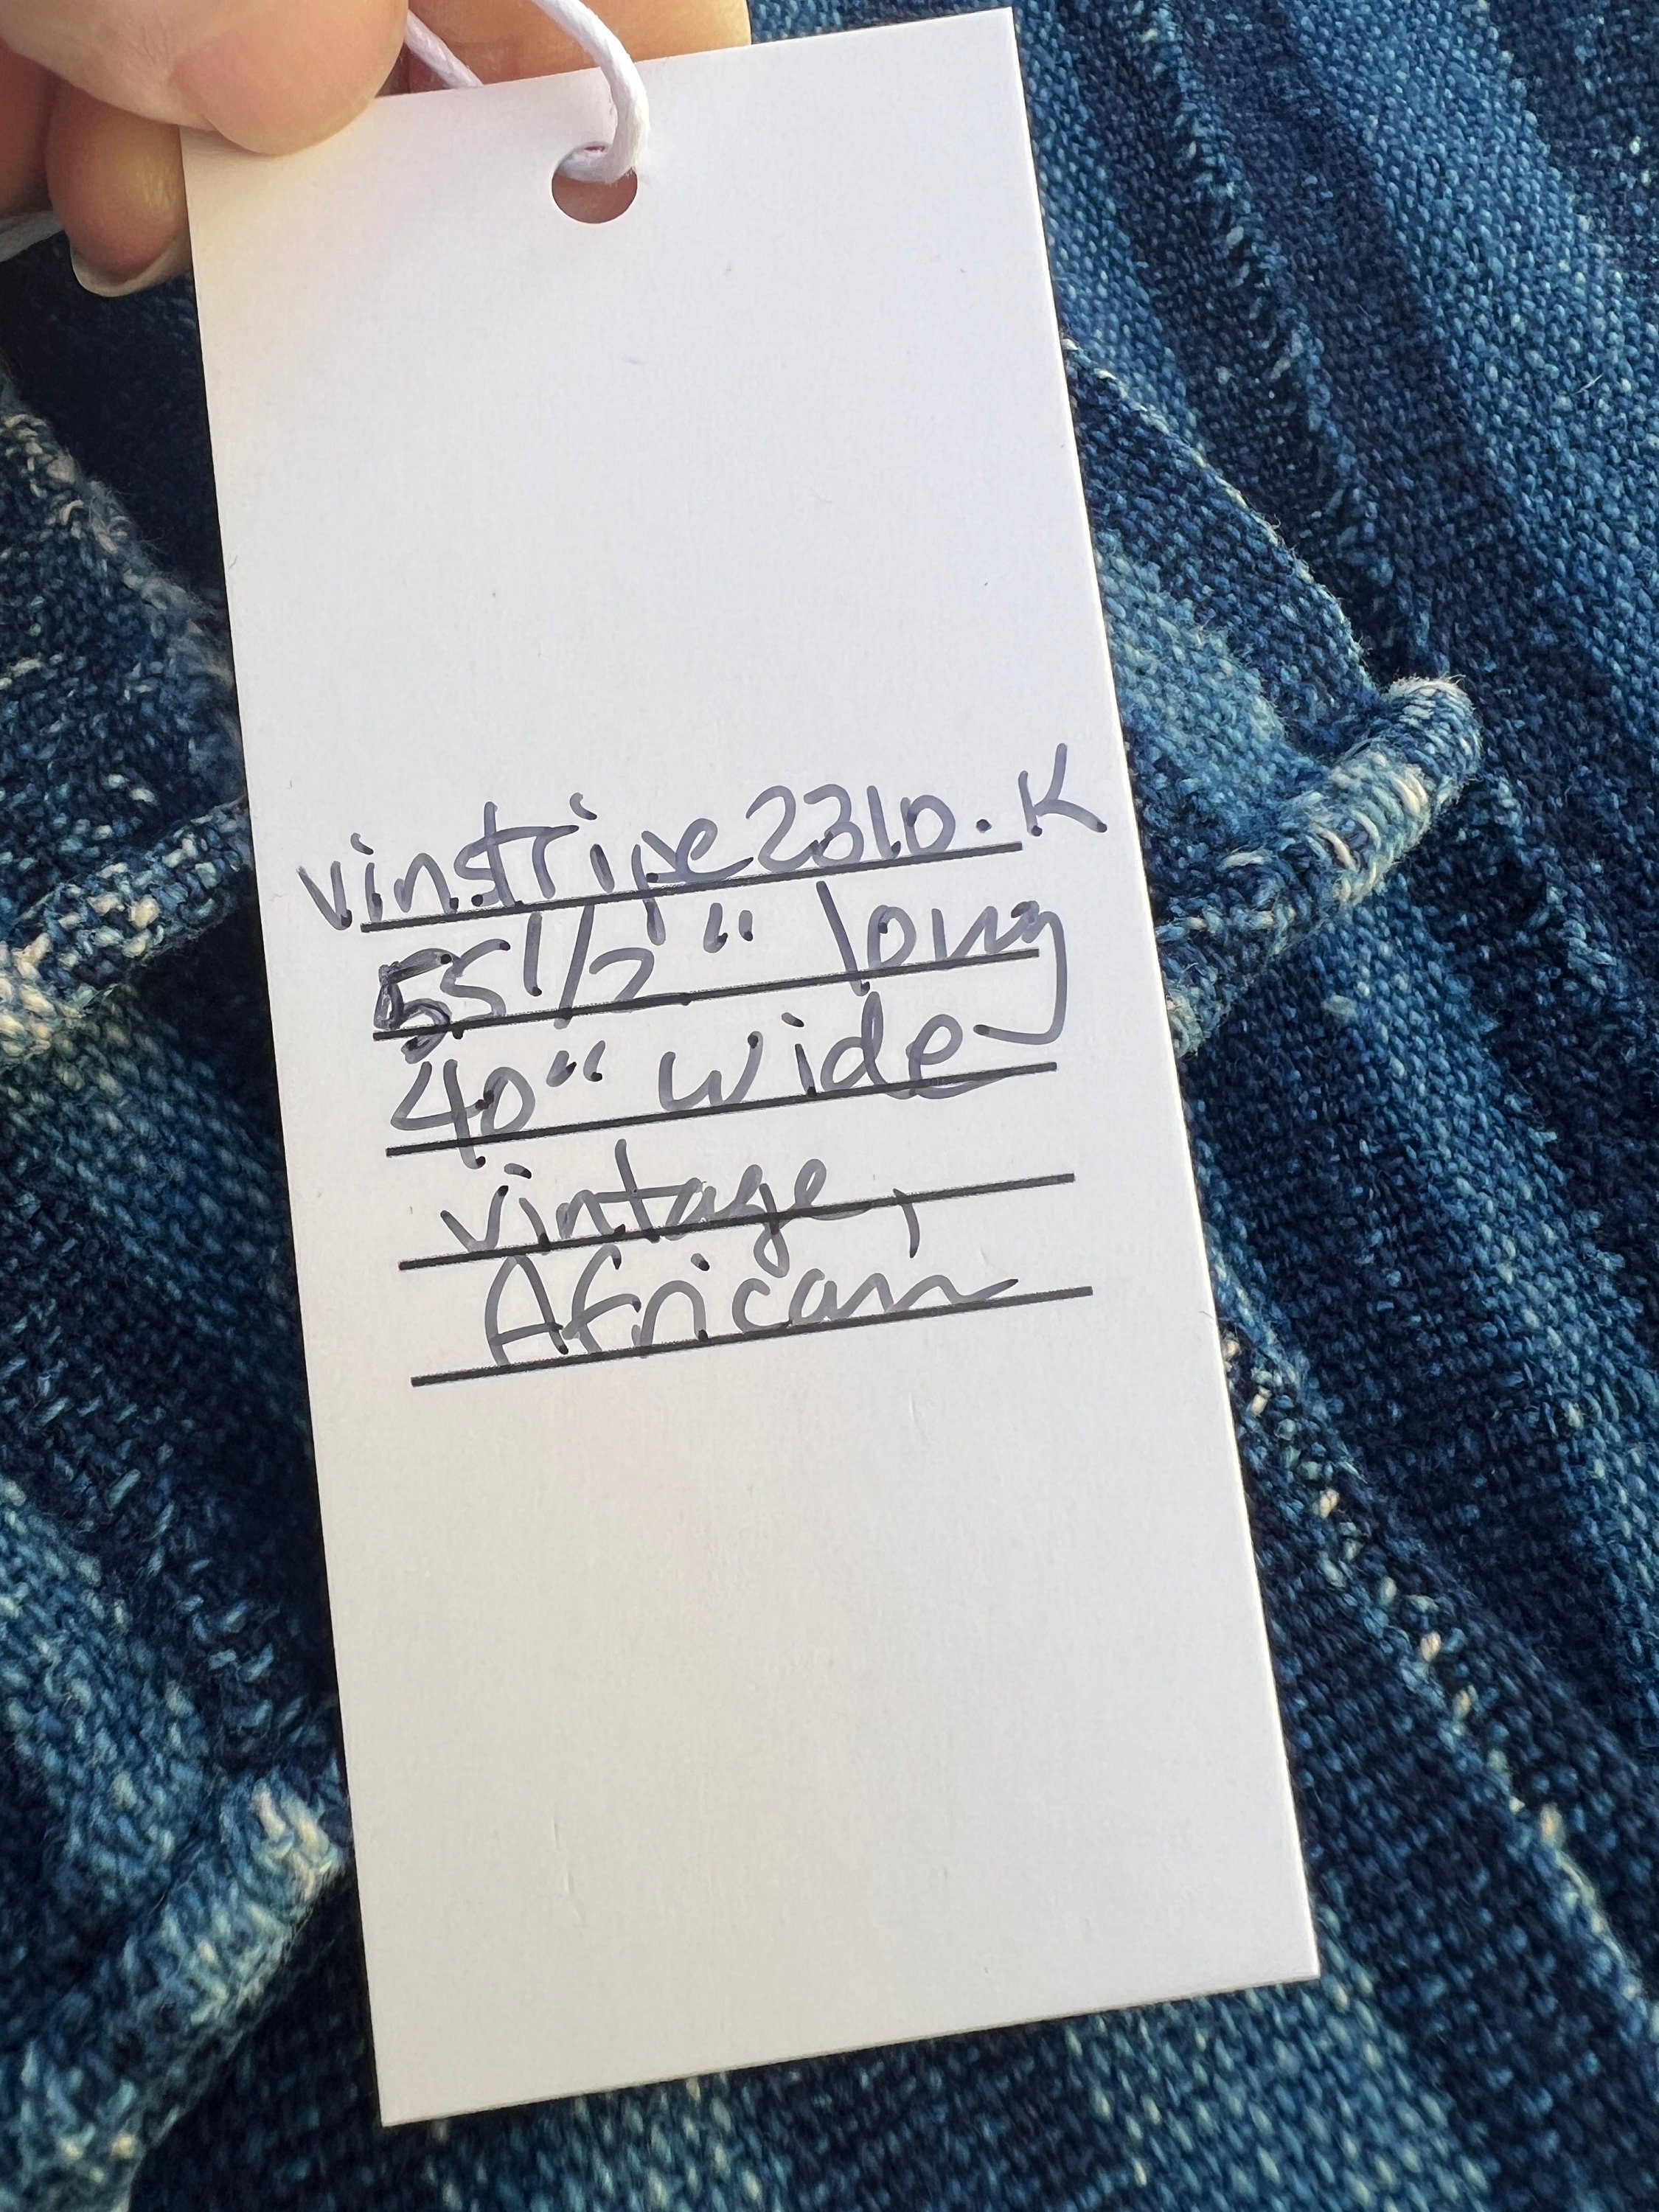 vinstripe2310.K
55 1/2" long
40" wide
vintage,
African